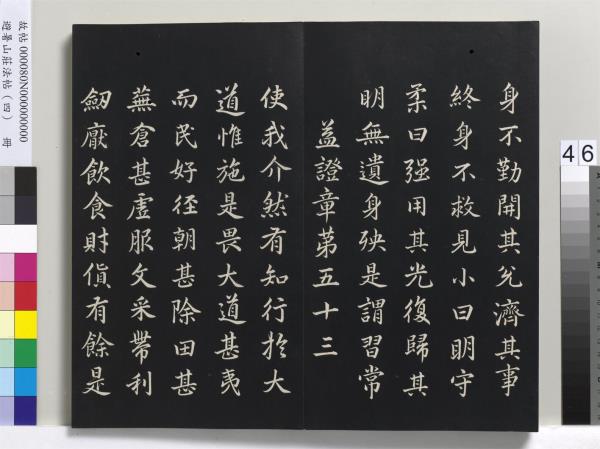 身不勤開其兊濟其事
終身不救見小曰明守
柔曰强用其光復歸其
明無遺身殃是謂習常
益證章苐五十三
使我介然有知行於大
道惟施是畏大道甚夷
而民好徑朝甚除田甚
蕪倉甚虛服文采帶利
劒厭飲食財貨有餘是
故帖 000080N000000000
避暑山莊法帖（四） 冊
46